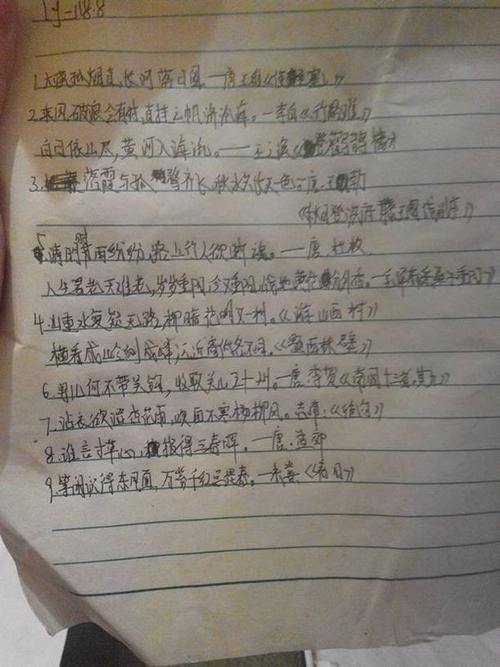 1.大漠孤烟直,长河落日圆。—唐王维《使至塞》
2.东风破浪会有时,直挂云帆济沧海。—李白《行路难》
白日依山尽,黄河入海流。——王之涣《登鹳雀楼》
3.落霞与孤鹜齐飞,秋水长天一色。唐王勃
《秋日登洪府滕王阁饯别序》
5清明时雨纷纷,路上行人欲断魂。——唐 杜牧
人生易老天难老,岁岁重阳,今又重阳,战地黄花分外香。—毛泽东
4.山重水复疑无路,柳暗花明又一村。《游山西村》
横看成岭侧成峰,远近高低各不同。《题西林壁》
6.男儿何不带吴钩,收取关山五十州。—唐.李贺《南园十三首,其五》
7.沾衣欲湿杏花雨,吹面不寒杨柳风。志南.《绝句》
8.谁言寸草心,报得三春晖。—唐.孟郊
9.等闲识得东风面,万紫千红总是春。—朱熹《春日》